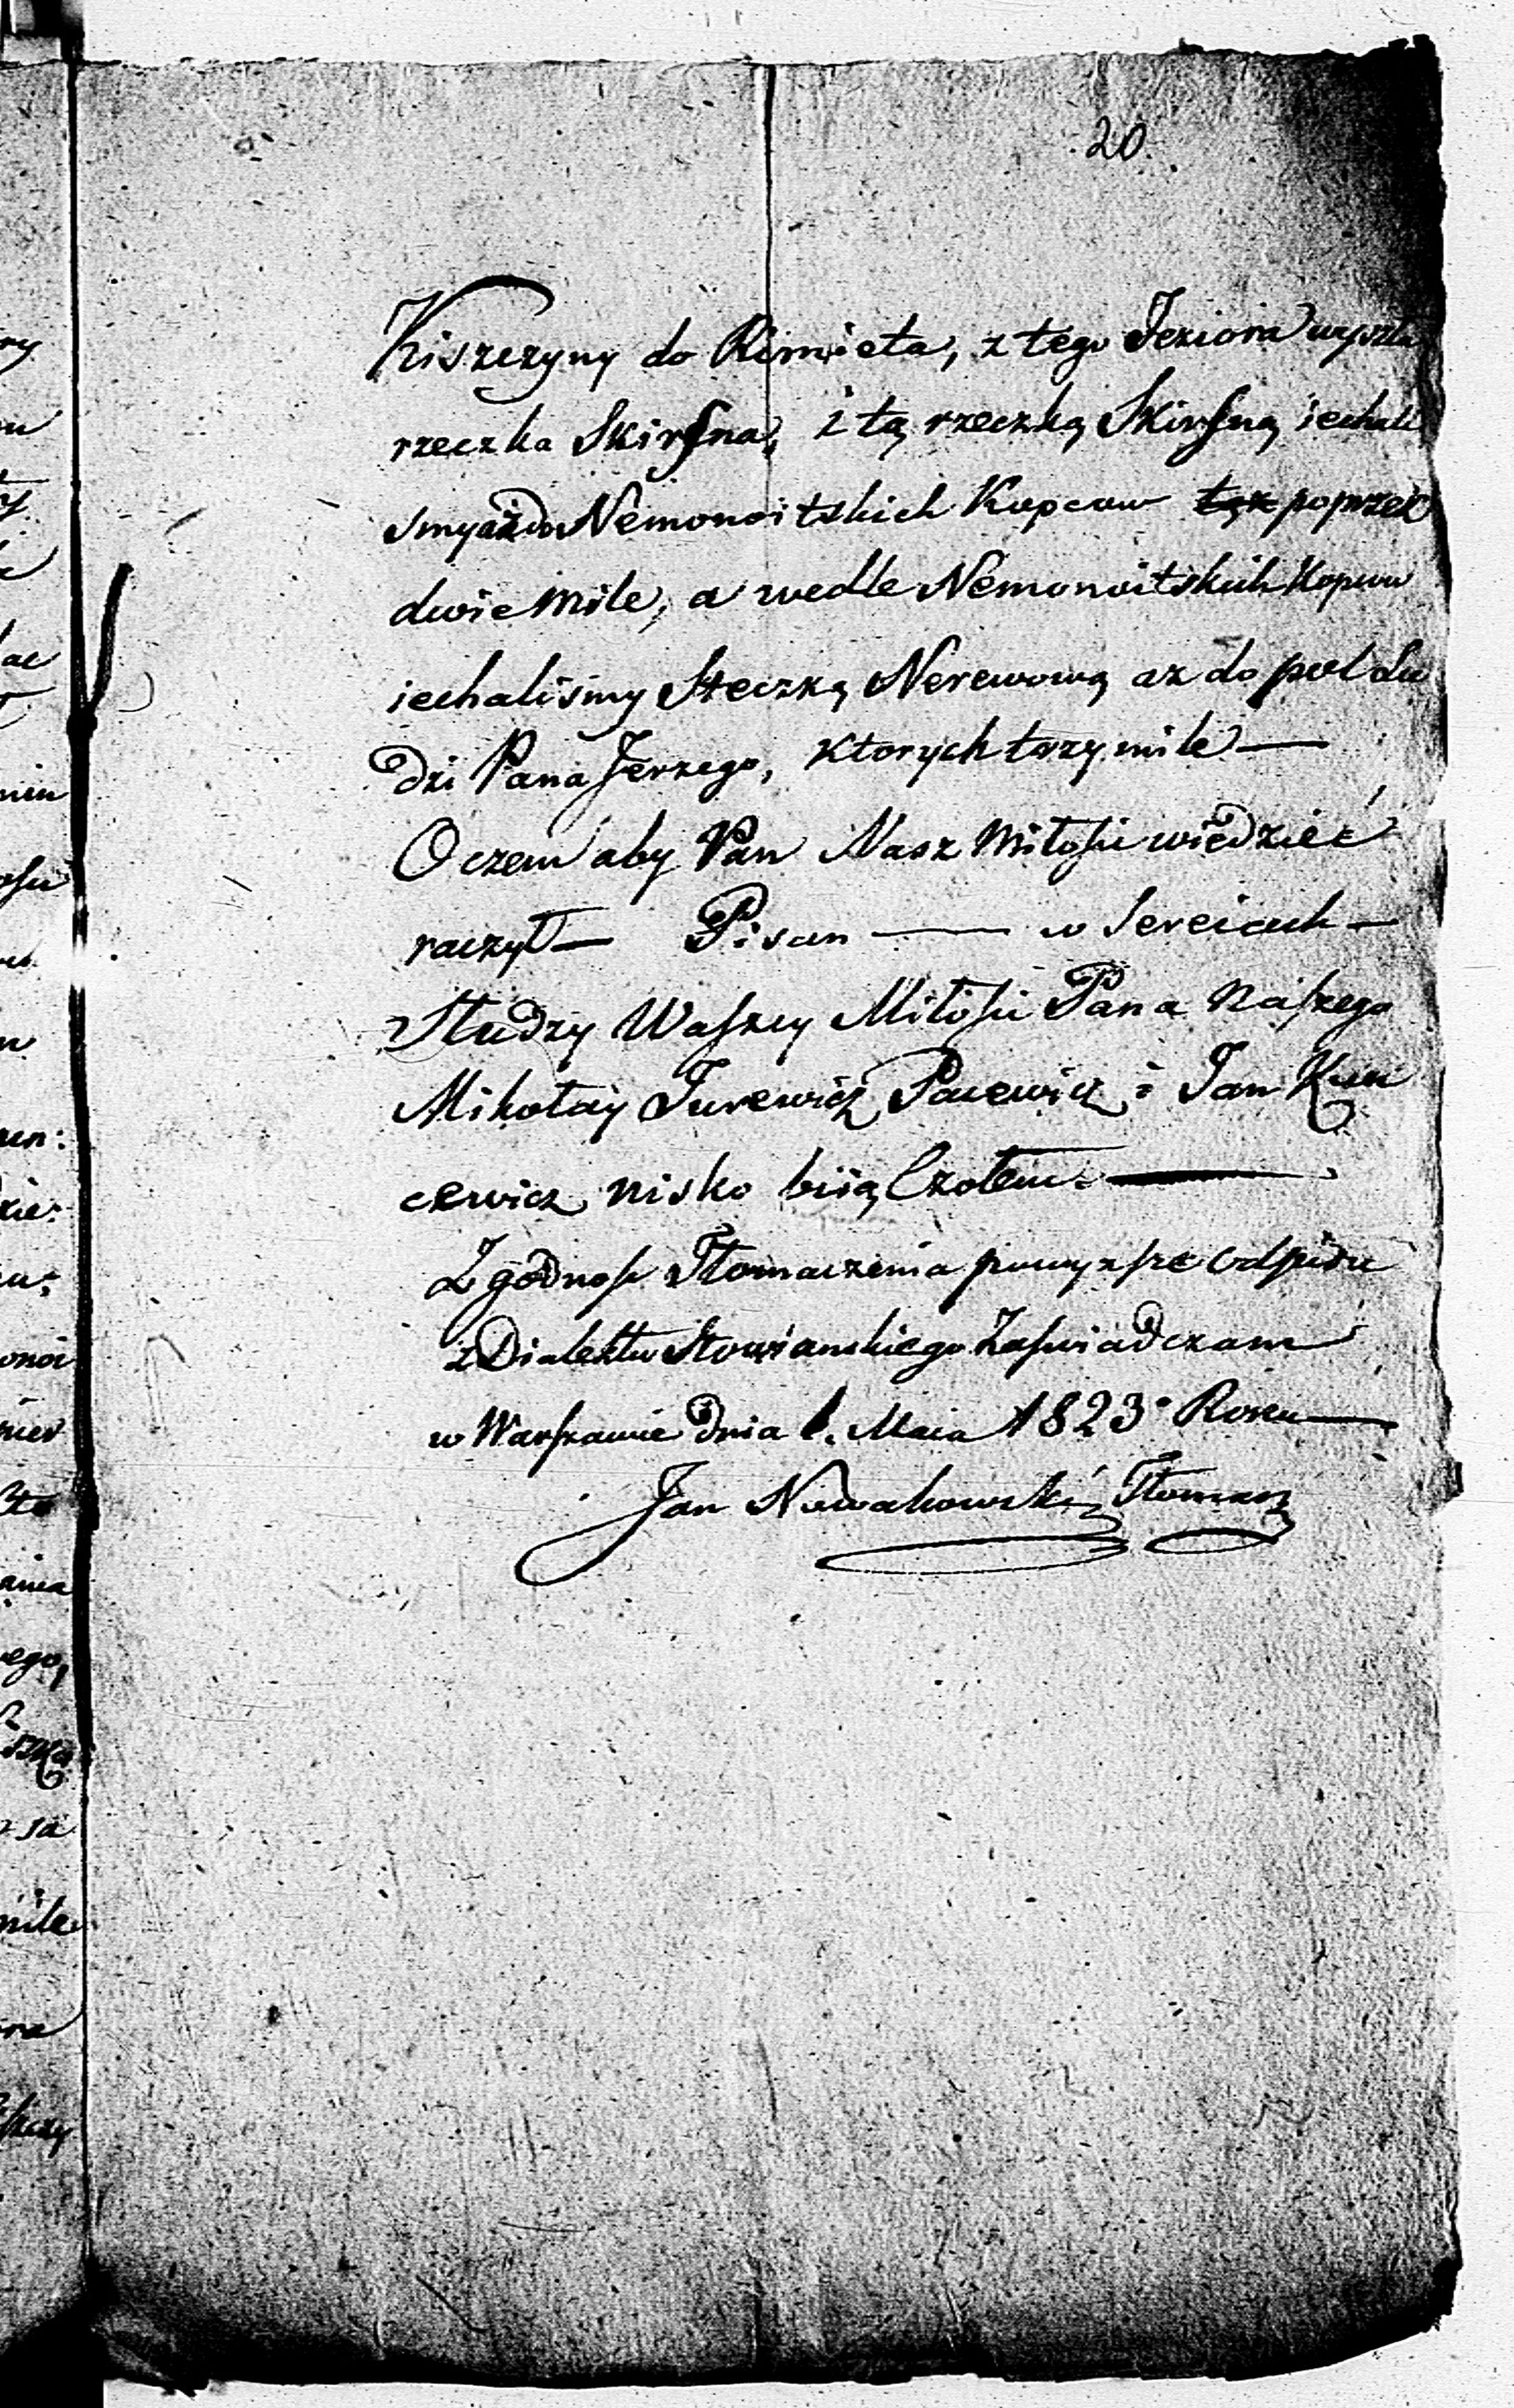 20.
Kiszczyny do Rimieta, z tego Jeziora wyszła
rzeczka Skirsna, i tą rzeczką Skirsną iechali
smy aż do Nemonoitskich Kopcow poprzek
dwie mile, a wedle Nemonoitskich Kopcow
iechaliśmy Steczką Nerewową az do pol Lu
dzi Pana Jerzego, ktorych trzy mile —
O czem aby Pan Nasz Miłości wiedzieć
raczył — Pisan — w Sereiach —
Słudzy Waszey Miłości Pana Naszego
Mikołay Jurewicz Pacewicz i Jan Kun
cewicz nisko biią Czołem. —
Zgodność Tłomaczenia powyższe odpisu
z Dialektu Słowianskiego Zaświadczam
w Warszawie dnia 1. Maia 1823 Roku —
Jan Nowakowski Tłomacz